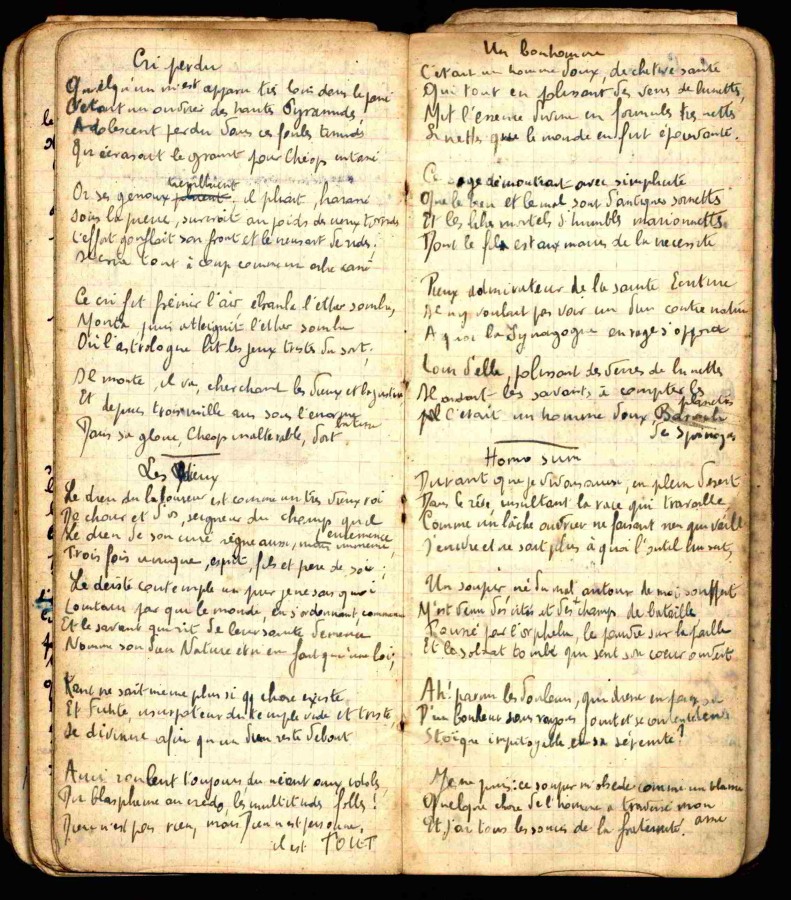 Cri perdu
Quelqu'un m'est apparu très loin dans le passé
C'était un ouvrier des hautes Pyramides,
Adolescent perdu dans ces foules timides
Qu'écrasait le granit pour Chéops entassé
Or ses genoux tremblaient, il pliait, harassé
Sous la pierre, surcroît au poids des cieux torrides
L'effort gonflait son front et le creusait de rides.
Il cria tout à coup comme un arbre cassé
Ce cri fit frémir l'air ébranla l'éther sombre,
Monta, puis atteignit l'éther sombre
Où l'astrologue lit les jeux tristes du sort;
Il monte, il va, cherchant les dieux et la justice
Et depuis trois mille ans sous l'énorme
bâtisse
Dans sa gloire, Chéops inaltérable, dort.
Les Dieux
Le dieu du laboureur est comme un très vieux roi
De chair et d'os, seigneur du champ qu'il
l'ensemence
Le dieu de son curé règne aussi, mais
Trois fois unique, esprit, fils et père de soi;
Le déiste contemple un pur je ne sais quoi
Lointain par qui le monde, en s'ordonnant, commence
Et le savant qui rit de leur sainte démence
Nomme son dieu Nature et n'en fait qu'une loi;
Kant ne sait même plus si qq chose existe
Et Fichte, usurpateur du temple vide et triste,
Se divinise afin qu'un dieu reste debout
Ainsi roulent toujours du néant aux idoles,
Du blasphème au credo, les multitudes folles!
Dieu n'est pas rien, mais Dieu n'est personne,
il est TOUT
Un bonhomme
C'était un homme doux, de chétive santé
Qui tout en polissant des verres de lunettes,
Mit l'essence divine en formules très nettes
Si nettes que le monde en fut épouvanté.
Ce sage démontrait avec simplicité
Que le bien et le mal sont d'antiques sornettes
Et les libres mortels d'humbles marionnettes
Dont le fil est aux mains de la nécessité
Pieux admirateur de la sainte Ecriture
Il n'y voulait pas voir un dieu contre nature
A quoi la Synagogue en rage s'opposa
Loin d'elle, polissant des verres de lunettes
Il aidait les savants à compter les
planètes
C'était un homme doux, Baruch
de Spinoza
Homo sum
Durant que je vivais ainsi, en plein désert
Dans le rêve, insultant la race qui travaille
Comme un lâche ouvrier ne faisant rien qui vaille
S'endure et ne sait plus à quoi l'outil lui sert,
Un soupir né du mal autour de moi souffert
M'est venu des cités et des champs de bataille
Poussé par l'orphelin, le pauvre sur la paille
Et le soldat tombé qui sent son coeur ouvert
Ah! parmi les douleurs, qui dresse en paix sa
D'un bonheur sans rayons jouit et se
Stoïque impitoyable en sa sérénité?
Je ne puis: ce soupir m'obsède comme un blâme
Quelque chose de l'homme a traversé mon
ame
Et j'ai tous les soucis de la fraternité.